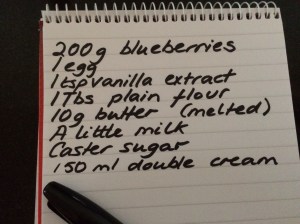 200g blueberries
1 egg
1 tsp vanilla extract
1 Tbs plain flour
10g butter (melted)
A little milk
Caster sugar
150 ml double cream